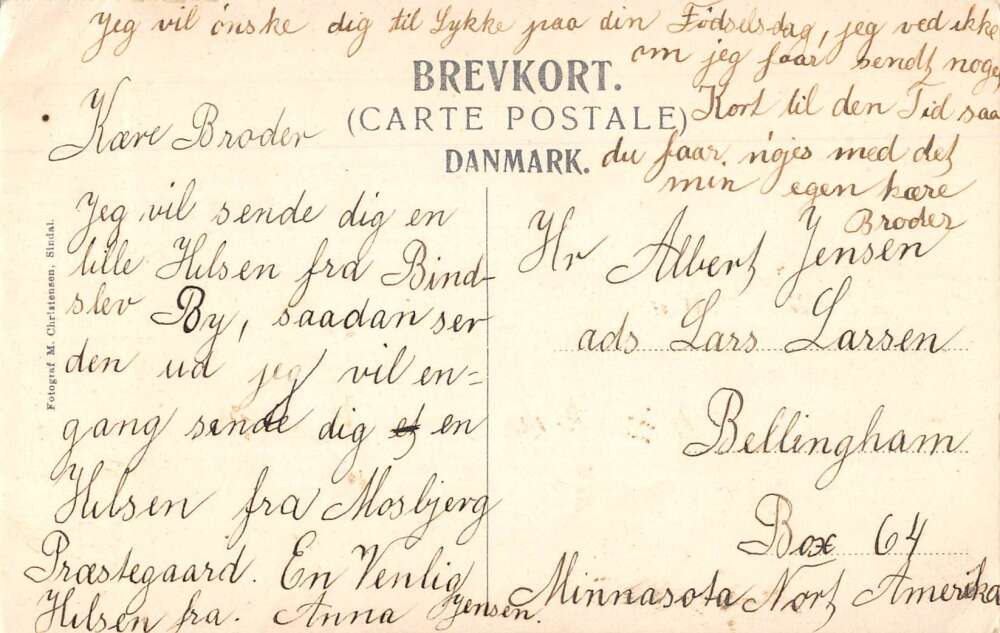 Jeg vil ønske dig til Lykke paa din Fødselsdag, jeg ved ikke
om jeg faar sendt noget
Kort til den Tid saa
du faar nøjes med det
min egen kære
Broder
BREVKORT.
(CARTE POSTALE)
DANMARK.
Kære Broder
Jeg vil sende dig en
lille Hilsen fra Bind-
slev By, saadan ser
den ud jeg vil en=
gang sende dig et en
Hilsen fra Mosbjerg
Præstegaard. En Venlig
Hilsen fra. Anna Jensen.
Hr Albert Jensen
ads Lars Larsen
Bellingham
Box 64
Minnasota Nort Amerika
Fotograf M. Christensen, Sindal.